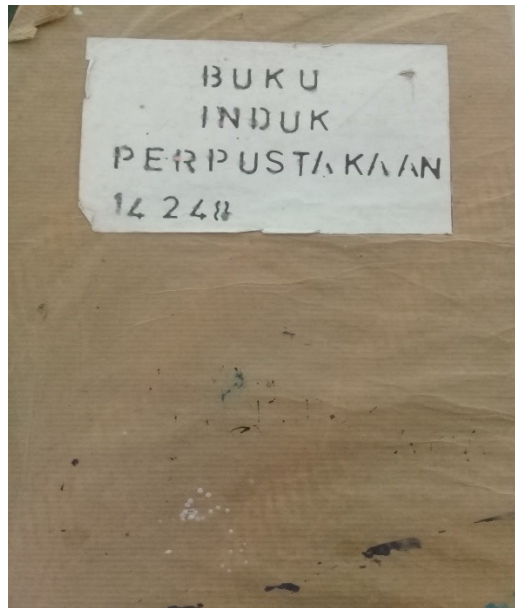 BUKU
INDUK
PERPUSTAKAAN
14248